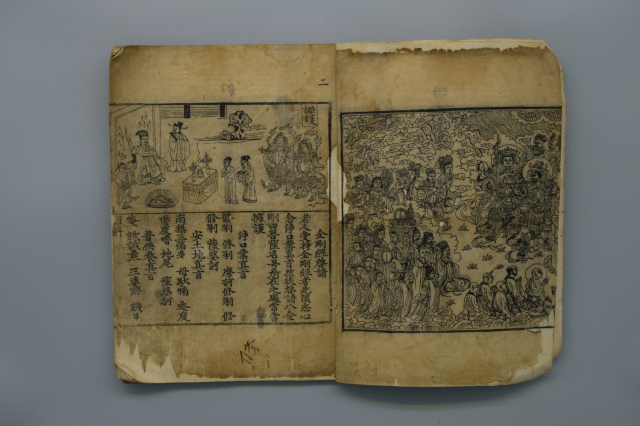 二
金剛經啓請
若人受持金剛經者先須志心
念淨口業真言然後啓請八金
剛四菩薩名号所在之處常當
擁護
淨口業真言
修唎 修唎 摩訶修唎 修
修唎 薩婆訶
安土地真言
南無三滿多 母馱喃 唵度
嚕度嚕 地尾 薩婆訶
普供養真言
唵 誐誐曩 三婆嚩 日